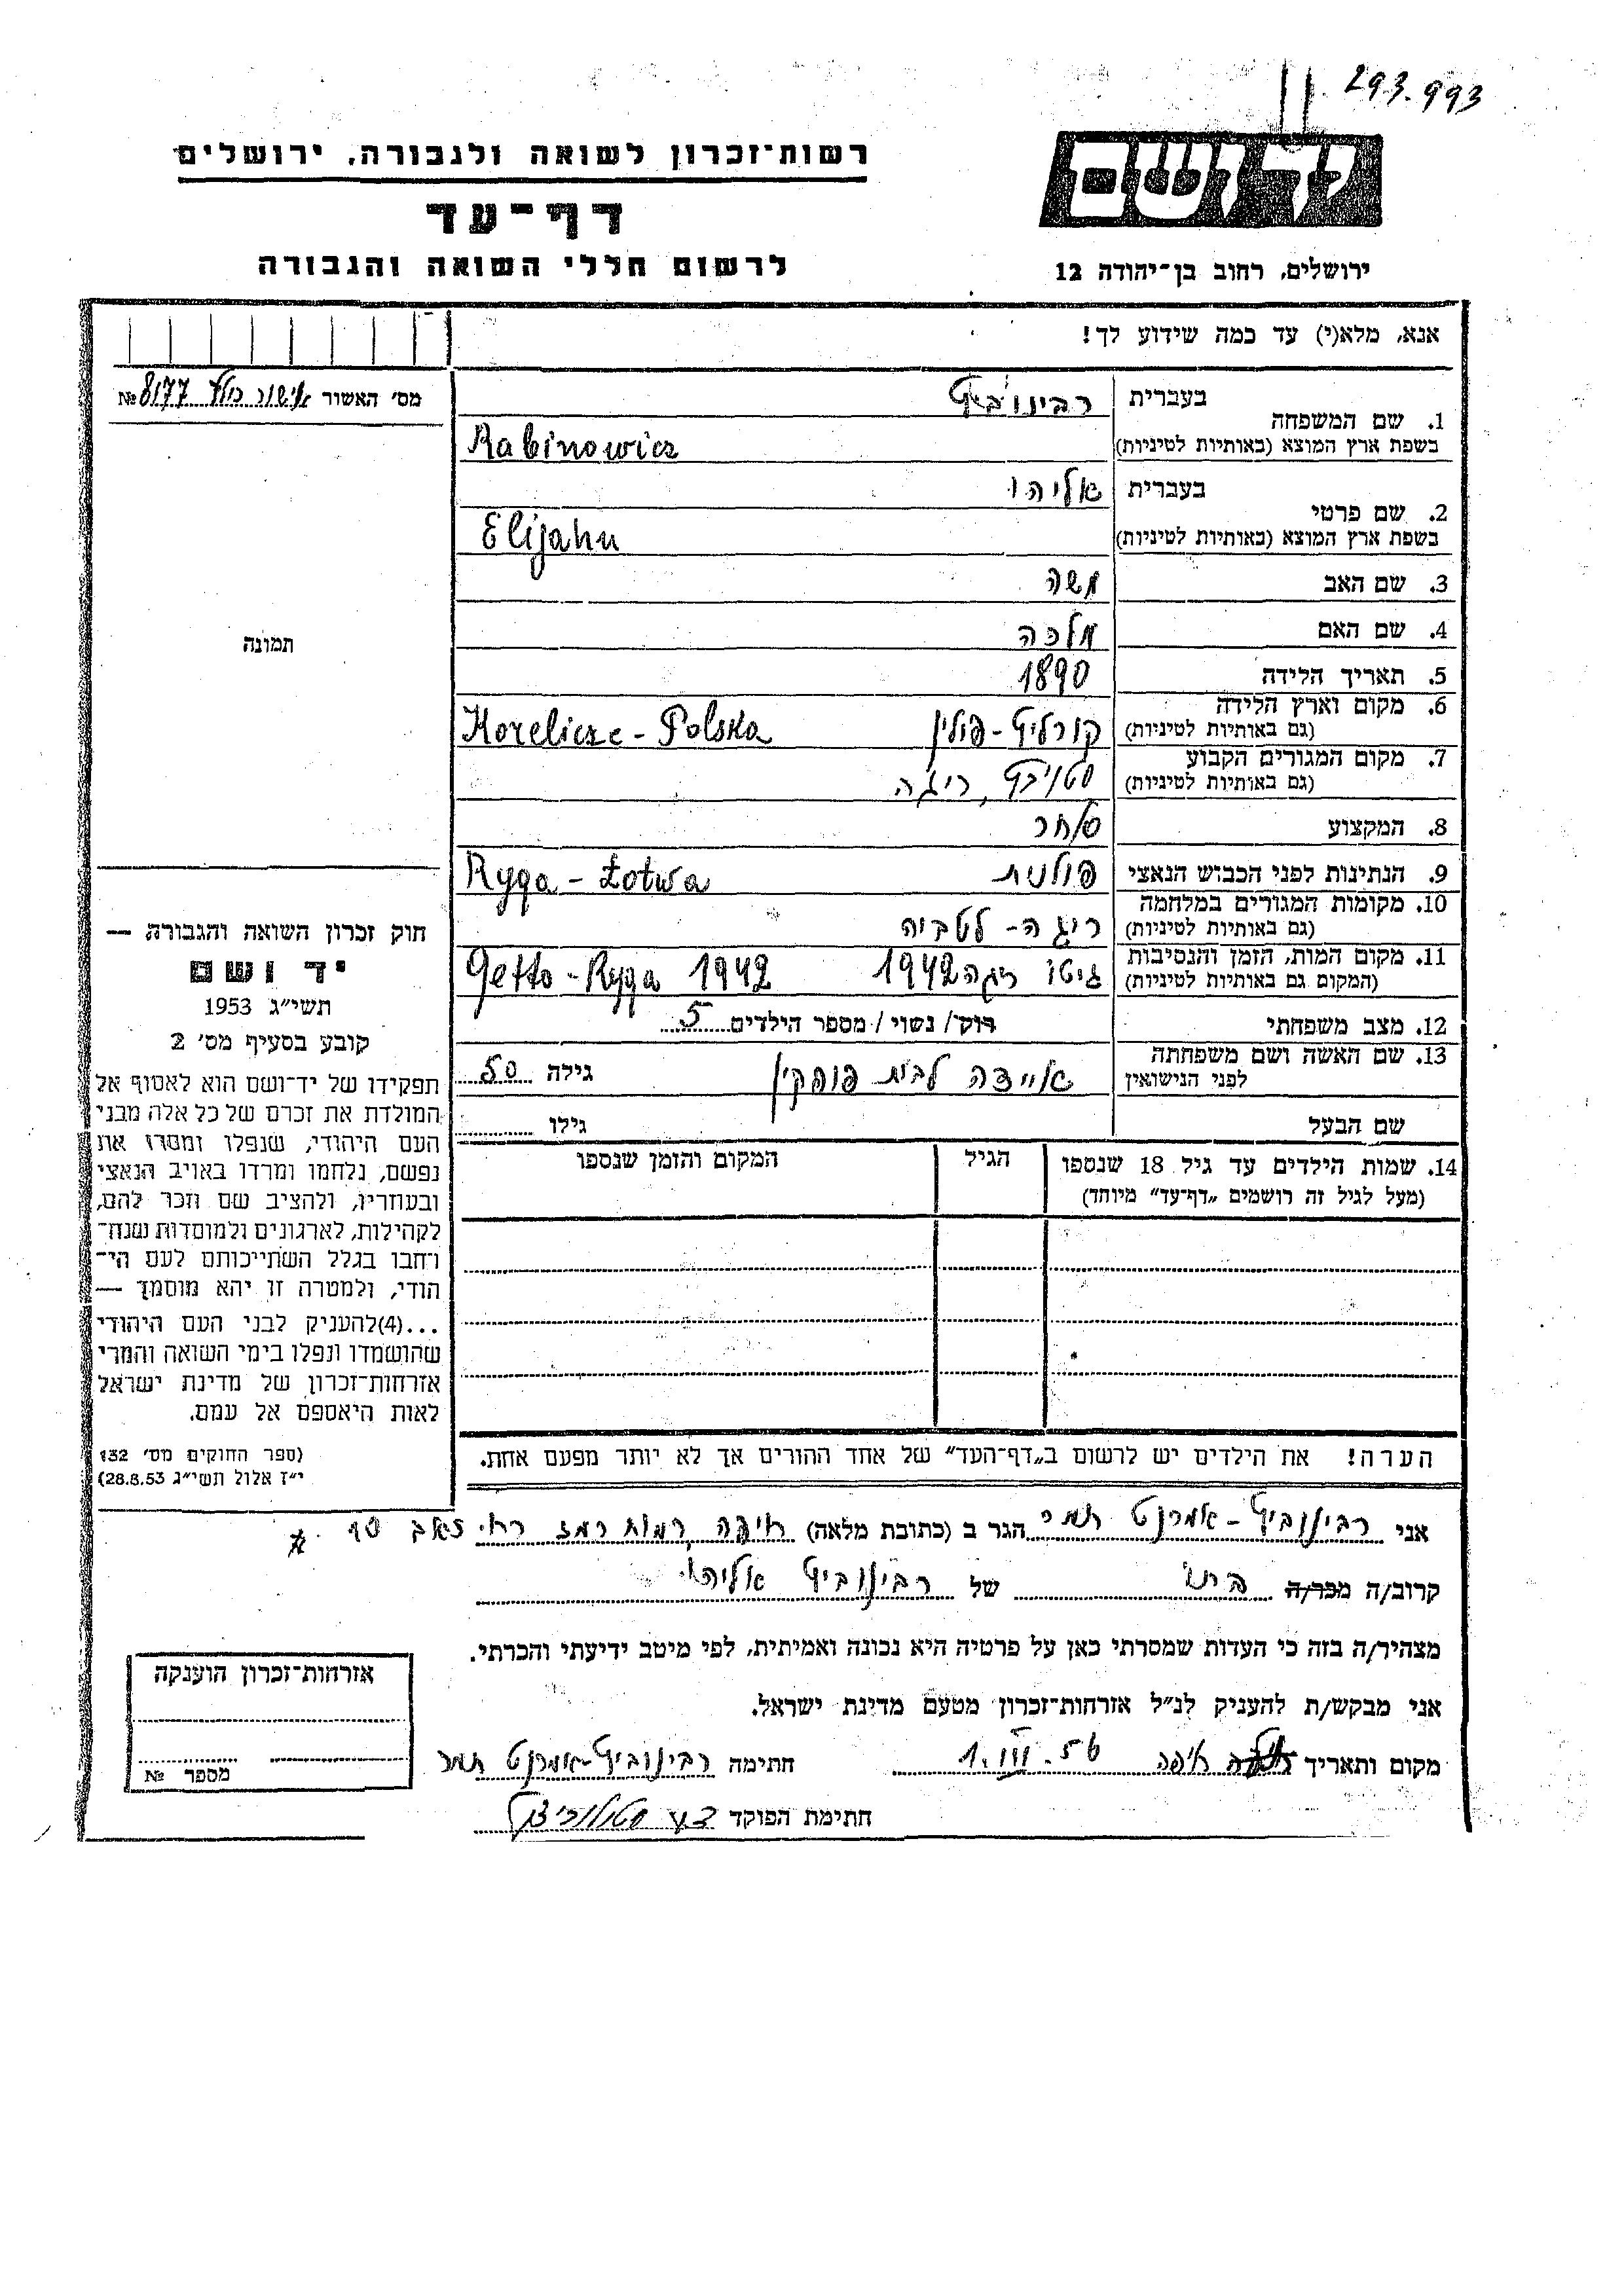 293.993
יד ושם
רשות־זכרון לשואה ולגבורה, ירושלים
דף־עד
לרשום חללי השואה והגבורה
ירושלים, רחוב בן־יהודה 12
אנא, מלא(י) עד כמה שידוע לך!
מס' האשור אישור כולל 8177 №
תמונה
1. שם המשפחה
בעברית רבינוביץ
בשפת ארץ המוצא (באותיות לטיניות) Rabinowicz
2. שם פרטי
בעברית אליהו
בשפת ארץ המוצא (באותיות לטיניות) Elijahu
3. שם האב משה
4. שם האם מלכה
5. תאריך הלידה 1890
6. מקום וארץ הלידה
(גם באותיות לטיניות) קורליץ - פולין Korelicze - Polska
7. מקום המגורים הקבוע
(גם באותיות לטיניות) סטויבץ, ריגה
8. המקצוע סוחר
9. הנתינות לפני הכבוש הנאצי פולנית Ryga - Łotwa
10. מקומות המגורים במלחמה
(גם באותיות לטיניות) ריגה - לטביה
11. מקום המות, הזמן והנסיבות
(המקום גם באותיות לטיניות) גיטו ריגה 1942 Getto - Ryga 1942
12. מצב משפחתי רוק/ נשוי / מספר הילדים 5
13. שם האשה ושם משפחתה
לפני הנישואין לבית גילה 50
שם הבעל גילו
14. שמות הילדים עד גיל 18 שנספו הגיל המקום והזמן שנספו
(מעל לגיל זה רושמים „דף־עד" מיוחד)
הערה! את הילדים יש לרשום ב„דף־העד" של אחד ההורים אך לא יותר מפעם אחת.
חוק זכרון השואה והגבורה —
יד ושם
תשי״ג 1953
קובע בסעיף מס' 2
תפקידו של יד־ושם הוא לאסוף אל
המולדת את זכרם של כל אלה מבני
העם היהודי, שנפלו ומסרו את
נפשם, נלחמו ומרדו באויב הנאצי
ובעוזריו, ולהציב שם וזכר להם,
לקהילות, לארגונים ולמוסדות שנח־
רחבו בגלל השתייכותם לעם הי־
הודי, ולמטרה זו יהא מוסמך —
...(4)להעניק לבני העם היהודי
שהושמדו ונפלו בימי השואה והמרי
אזרחות־זכרון של מדינת ישראל
לאות היאספם אל עמם.
(ספר החוקים מס' 132
י״ז אלול תשי״ג 28.8.53)
אני רבינוביץ - תמר הגר ב (כתובת מלאה) חיפה רמות רמז
קרוב/ה מכר/ה הבת של רבינוביץ אליהו
מצהיר/ה בזה כי העדות שמסרתי כאן על פרטיה היא נכונה ואמיתית, לפי מיטב ידיעתי והכרתי.
אני מבקש/ת להעניק לנ״ל אזרחות־זכרון מטעם מדינת ישראל.
מקום ותאריך חיפה חתימה רבינוביץ - תמר
חתימת הפוקד
אזרחות־זכרון הוענקה
מספר №